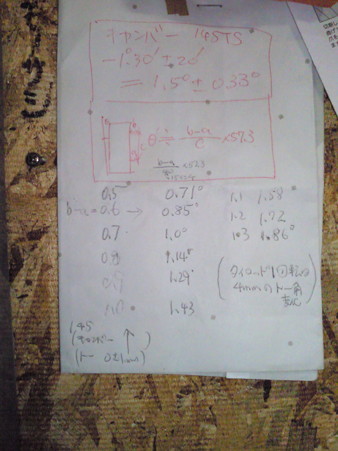 キャンバー 145TS
-1°30′±20′
= 1.5°±033°
θ° ≒ b-a/c ×57.3
b-a/ ×57.3
0.5 0.71°
b-a=0.6 → 0.85°
0.7 1.0°
0.8 1.14°
0.9 1.29°
1.0 1.43
1.1 1.58
1.2 1.72
1.3 1.86°
(タイロッド1回転の
4mmのトー角
変化)
1.45
(キャンバー ↑
(トー 0.21mm)